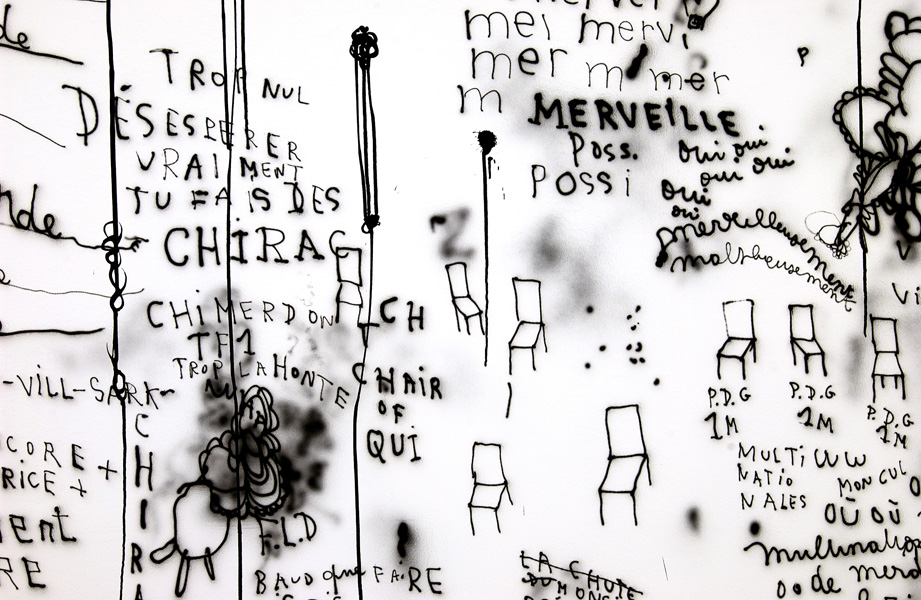 de
TROP NUL
DÉSESPERER
VRAIMENT
TU FAIS DES
CHIRAC
CHIMERDON
TF1
TROP LA HONTE
-VILL-SARK-
CORE +
RICE +
ient
RE
CHIRA
F.L.D
BAUD que FAIRE
CH
CHAIR
OF
QUI
mer merv
mer m mer
m MERVEILLE
Poss. oui oui
POSSi oui oui
oui
oui
merveilleusement
malheureusement
P
Z
P.D.G
1M
P.D.G
1M
P.D.G
1M
MULTI
NATIO
NALES
MON CUL
OÙ OÙ
de merd
LA CHUTE
DU MONSTRE